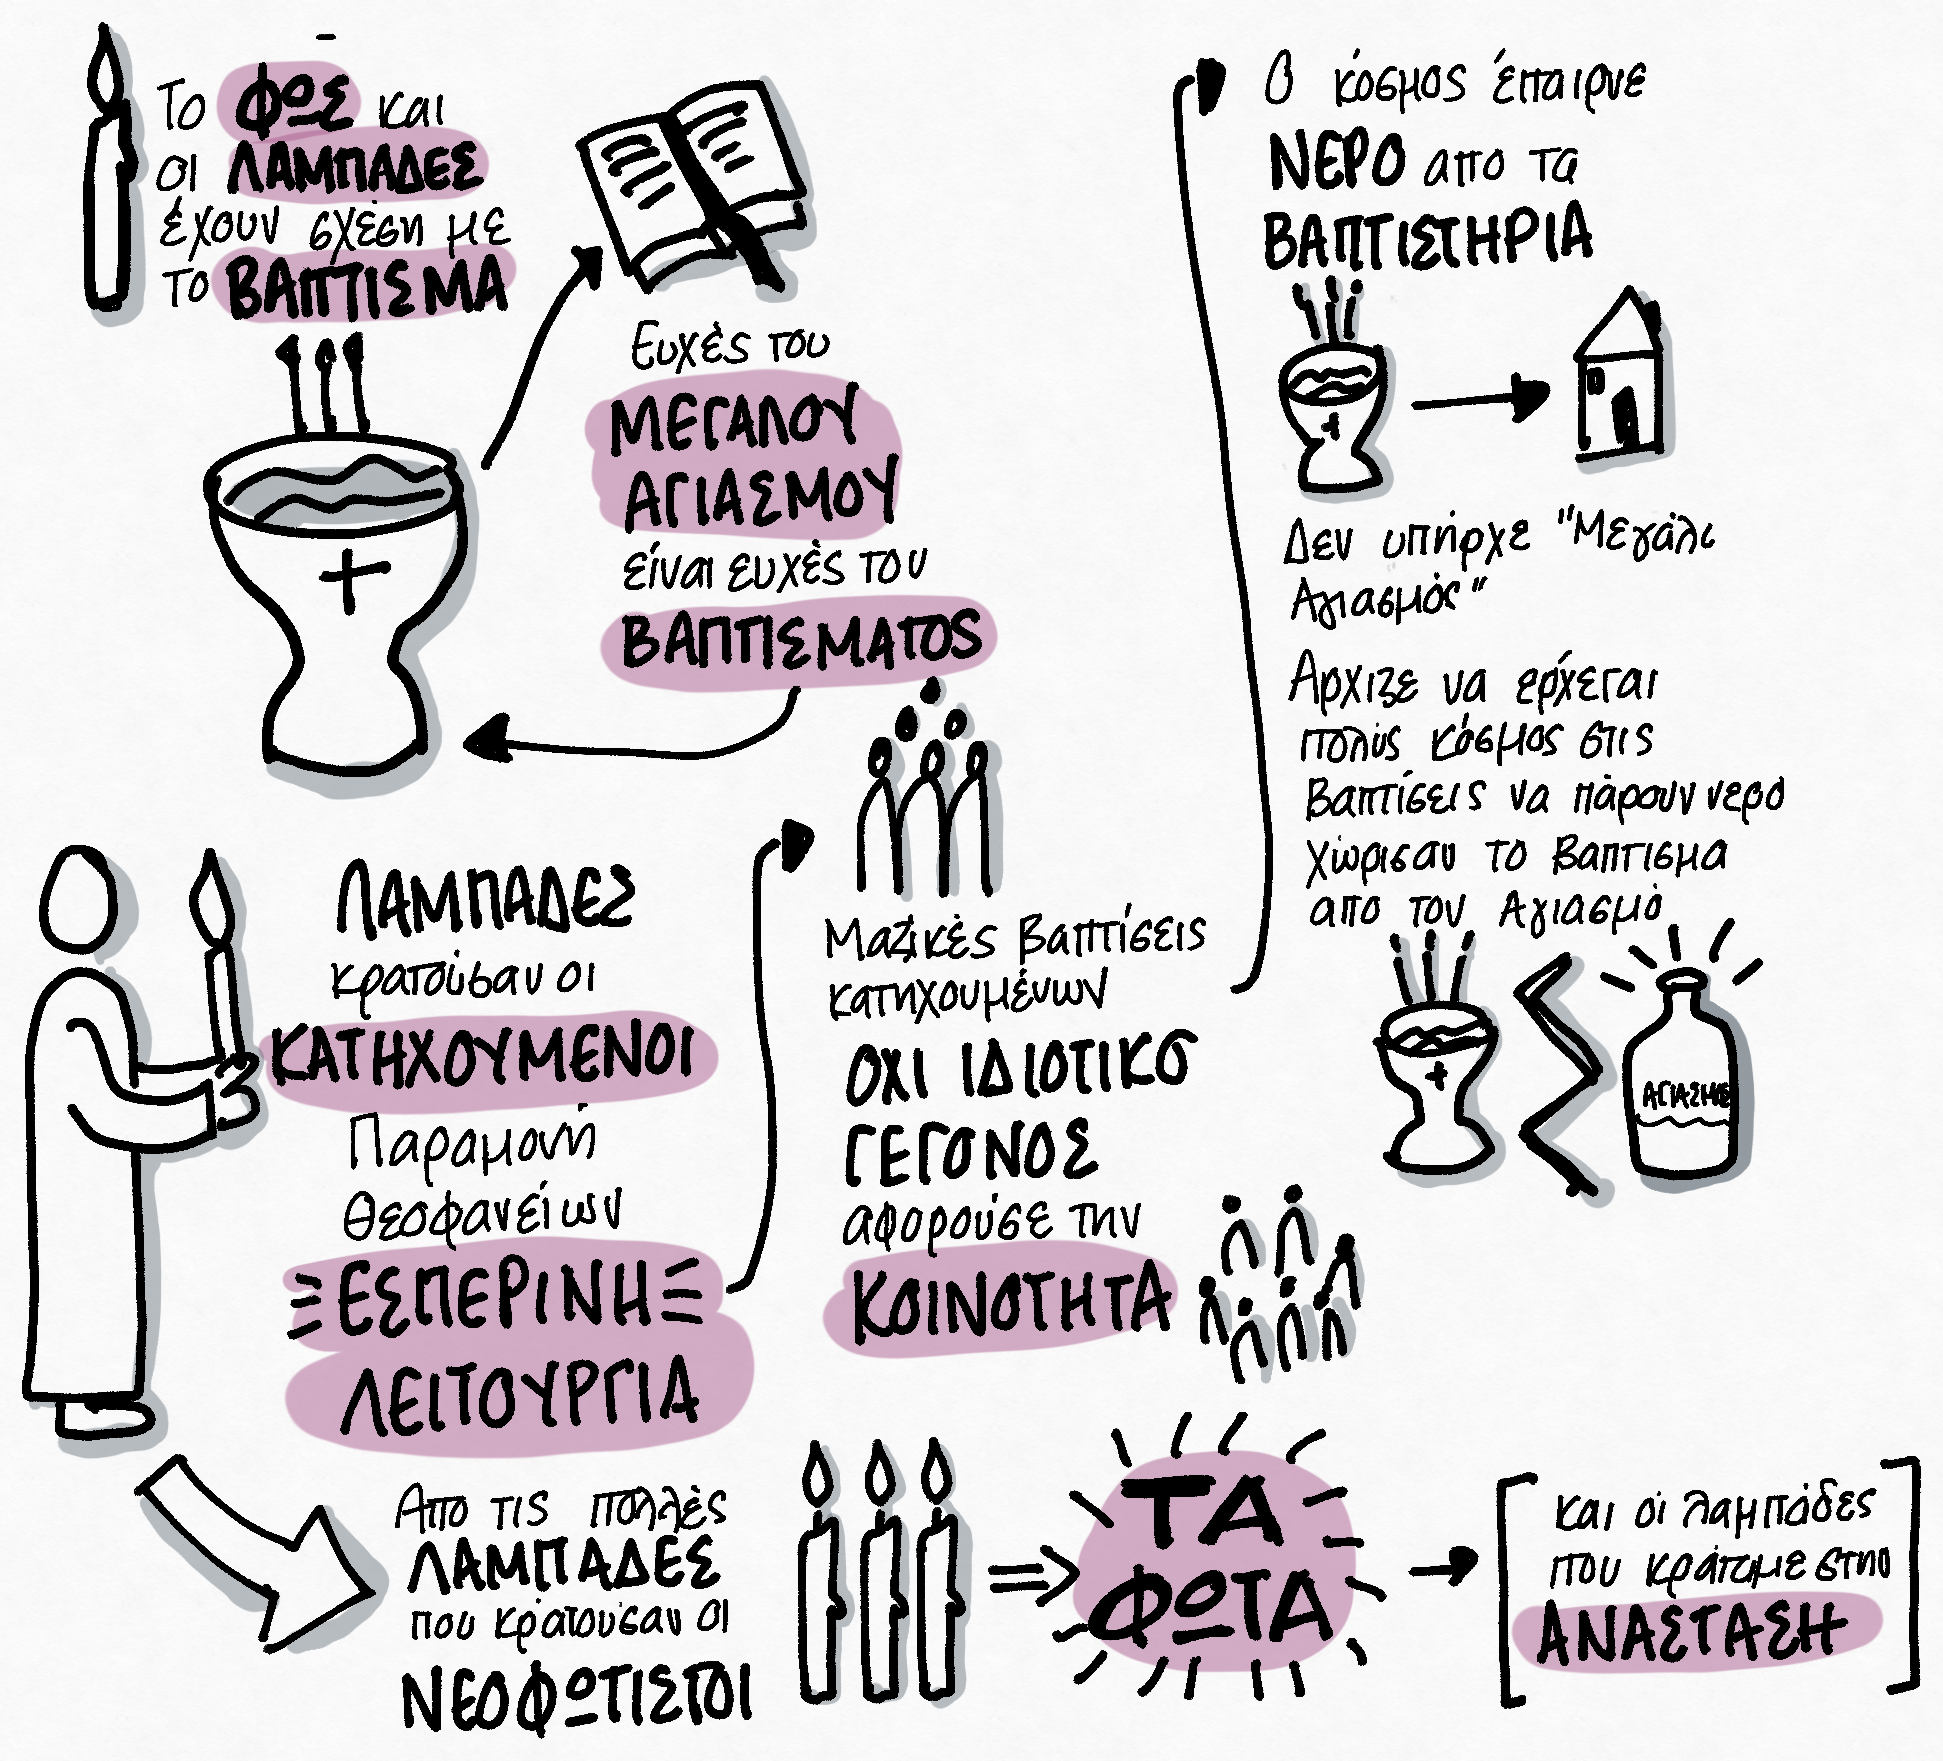 Το ΦΩΣ και
οι ΛΑΜΠΑΔΕΣ
έχουν σχέση με
το ΒΑΠΤΙΣΜΑ
Ευχές του
ΜΕΓΑΛΟΥ
ΑΓΙΑΣΜΟΥ
είναι ευχές του
ΒΑΠΤΙΣΜΑΤΟΣ
ΛΑΜΠΑΔΕΣ
κρατούσαν οι
ΚΑΤΗΧΟΥΜΕΝΟΙ
Παραμονή
Θεοφανείων
ΕΣΠΕΡΙΝΗ
ΛΕΙΤΟΥΡΓΙΑ
Μαζικές βαπτίσεις
κατηχουμένων
ΟΧΙ ΙΔΙΟΤΙΚΟ
ΓΕΓΟΝΟΣ
αφορούσε την
ΚΟΙΝΟΤΗΤΑ
Ο κόσμος έπαιρνε
ΝΕΡΟ απο τα
ΒΑΠΤΙΣΤΗΡΙΑ
Δεν υπήρχε "Μεγάλς
Αγιασμός"
Αρχιζε να ερχεται
πολύς κόσμος στις
Βαπτίσεις να πάρουν νερο
χώρισαν το Βαπτισμα
απο τον Αγιασμό
ΑΓΙΑΣΜΟΣ
Απο τις πολλές
ΛΑΜΠΑΔΕΣ
που κρατουσαν οι
ΝΕΟΦΩΤΙΣΤΟΙ
ΤΑ
ΦΩΤΑ
και οι λαμπάδες
που κράταμε στην
ΑΝΑΣΤΑΣΗ